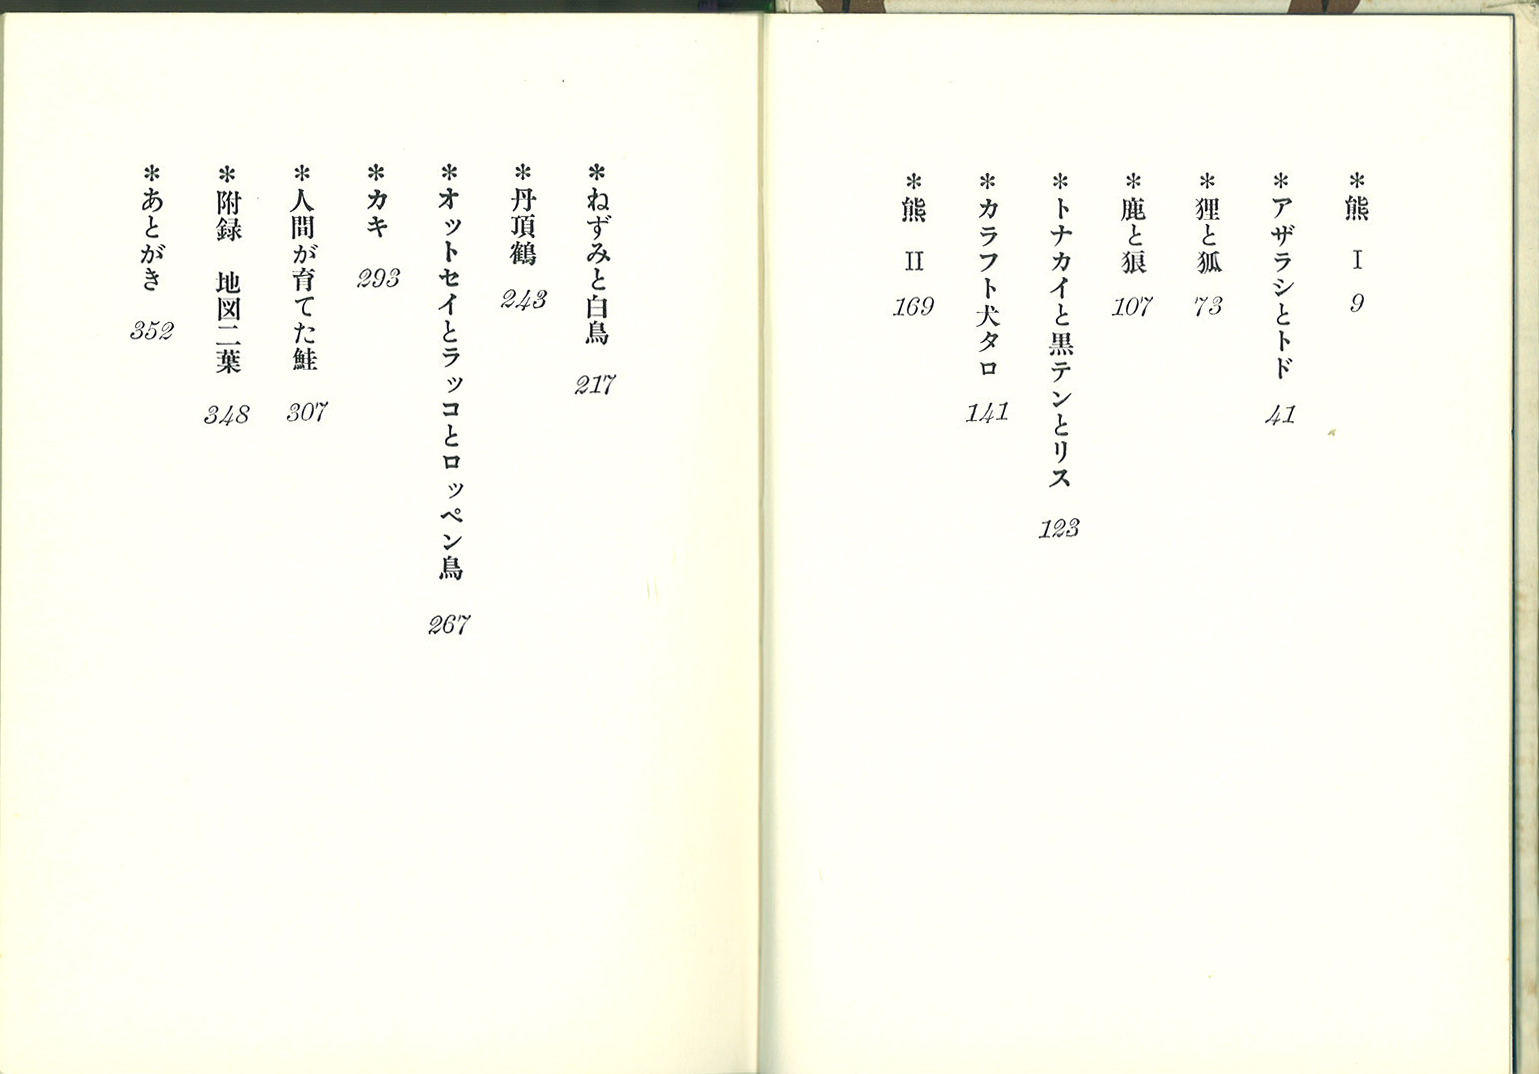 ＊熊　I　9
＊アザラシとトド　41
＊狸と狐　73
＊鹿と狼　107
＊トナカイと黒テンとリス　123
＊カラフト犬タロ　141
＊熊　II　169
＊ねずみと白鳥　217
＊丹頂鶴　243
＊オットセイとラッコとロッペン鳥　267
＊カキ　293
＊人間が育てた鮭　307
＊附録　地図二葉　348
＊あとがき　352